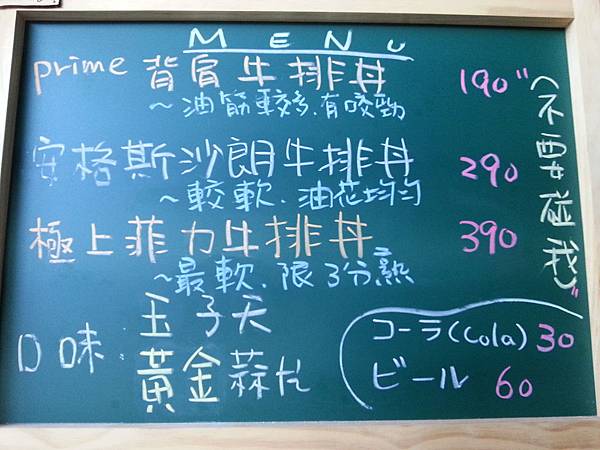 MENU
prime 背肩牛排丼 190
～油筋較多.有咬勁
安格斯沙朗牛排丼 290
～較軟.油花均勻
極上菲力牛排丼 390
～最軟.限3分熟
口味：玉子天
黃金蒜片
コーラ(Cola) 30
ビール 60
"(不要碰我)"